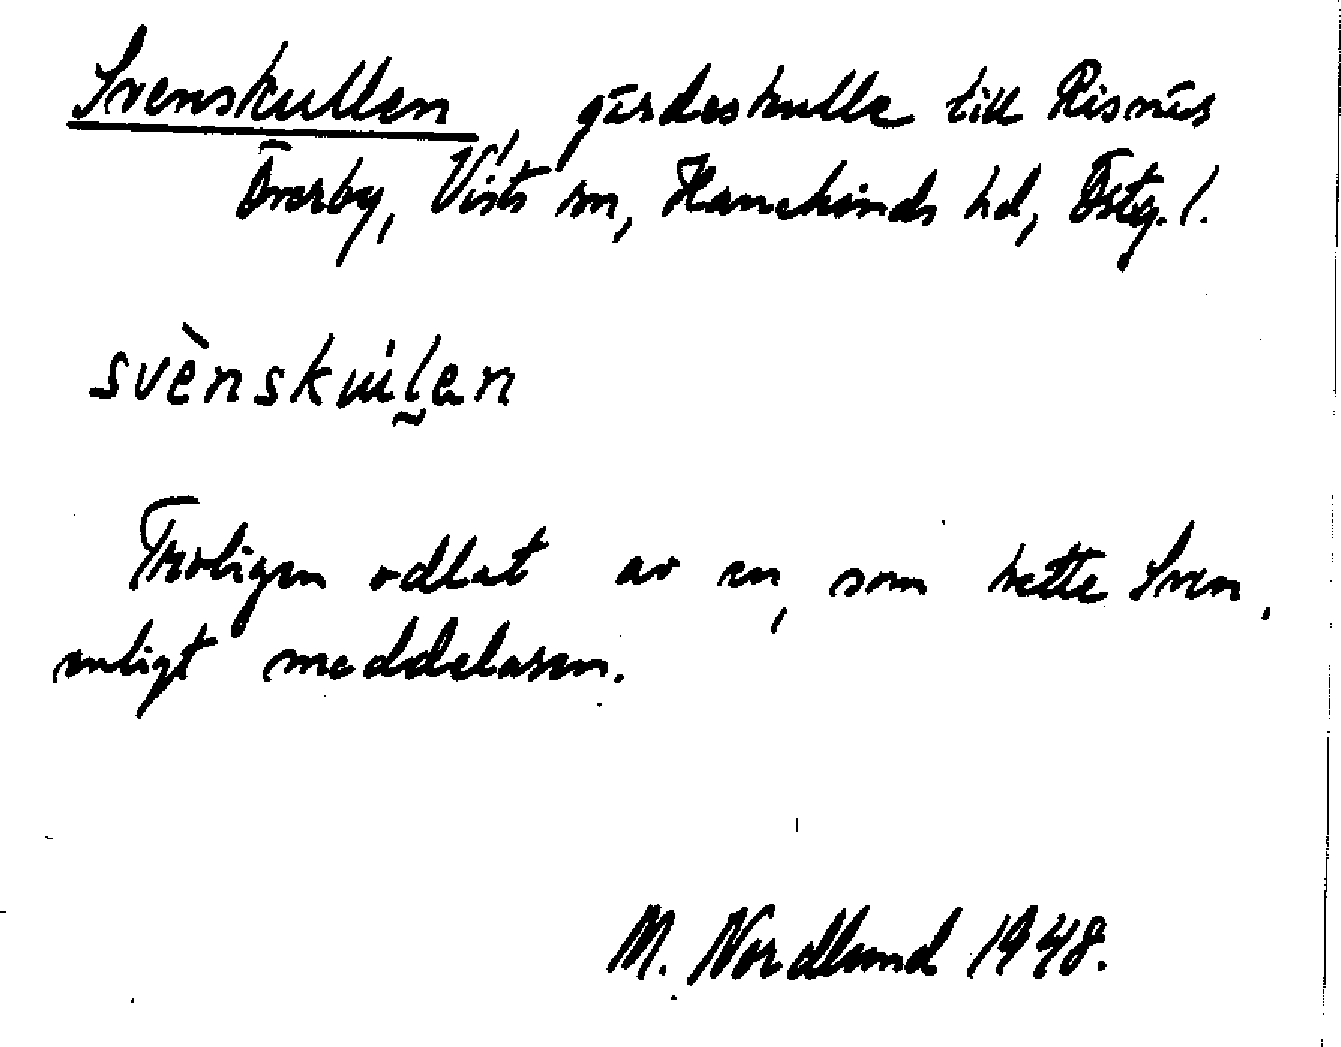 Svenskullen, gärdeskulle till Risnäs
Överby, Vists sn, Hanekinds hd, Östg. l.
svènskuḷen
Troligen odlat av en, som hette Sven,
enligt meddelaren.
M. Nordlund 1948.